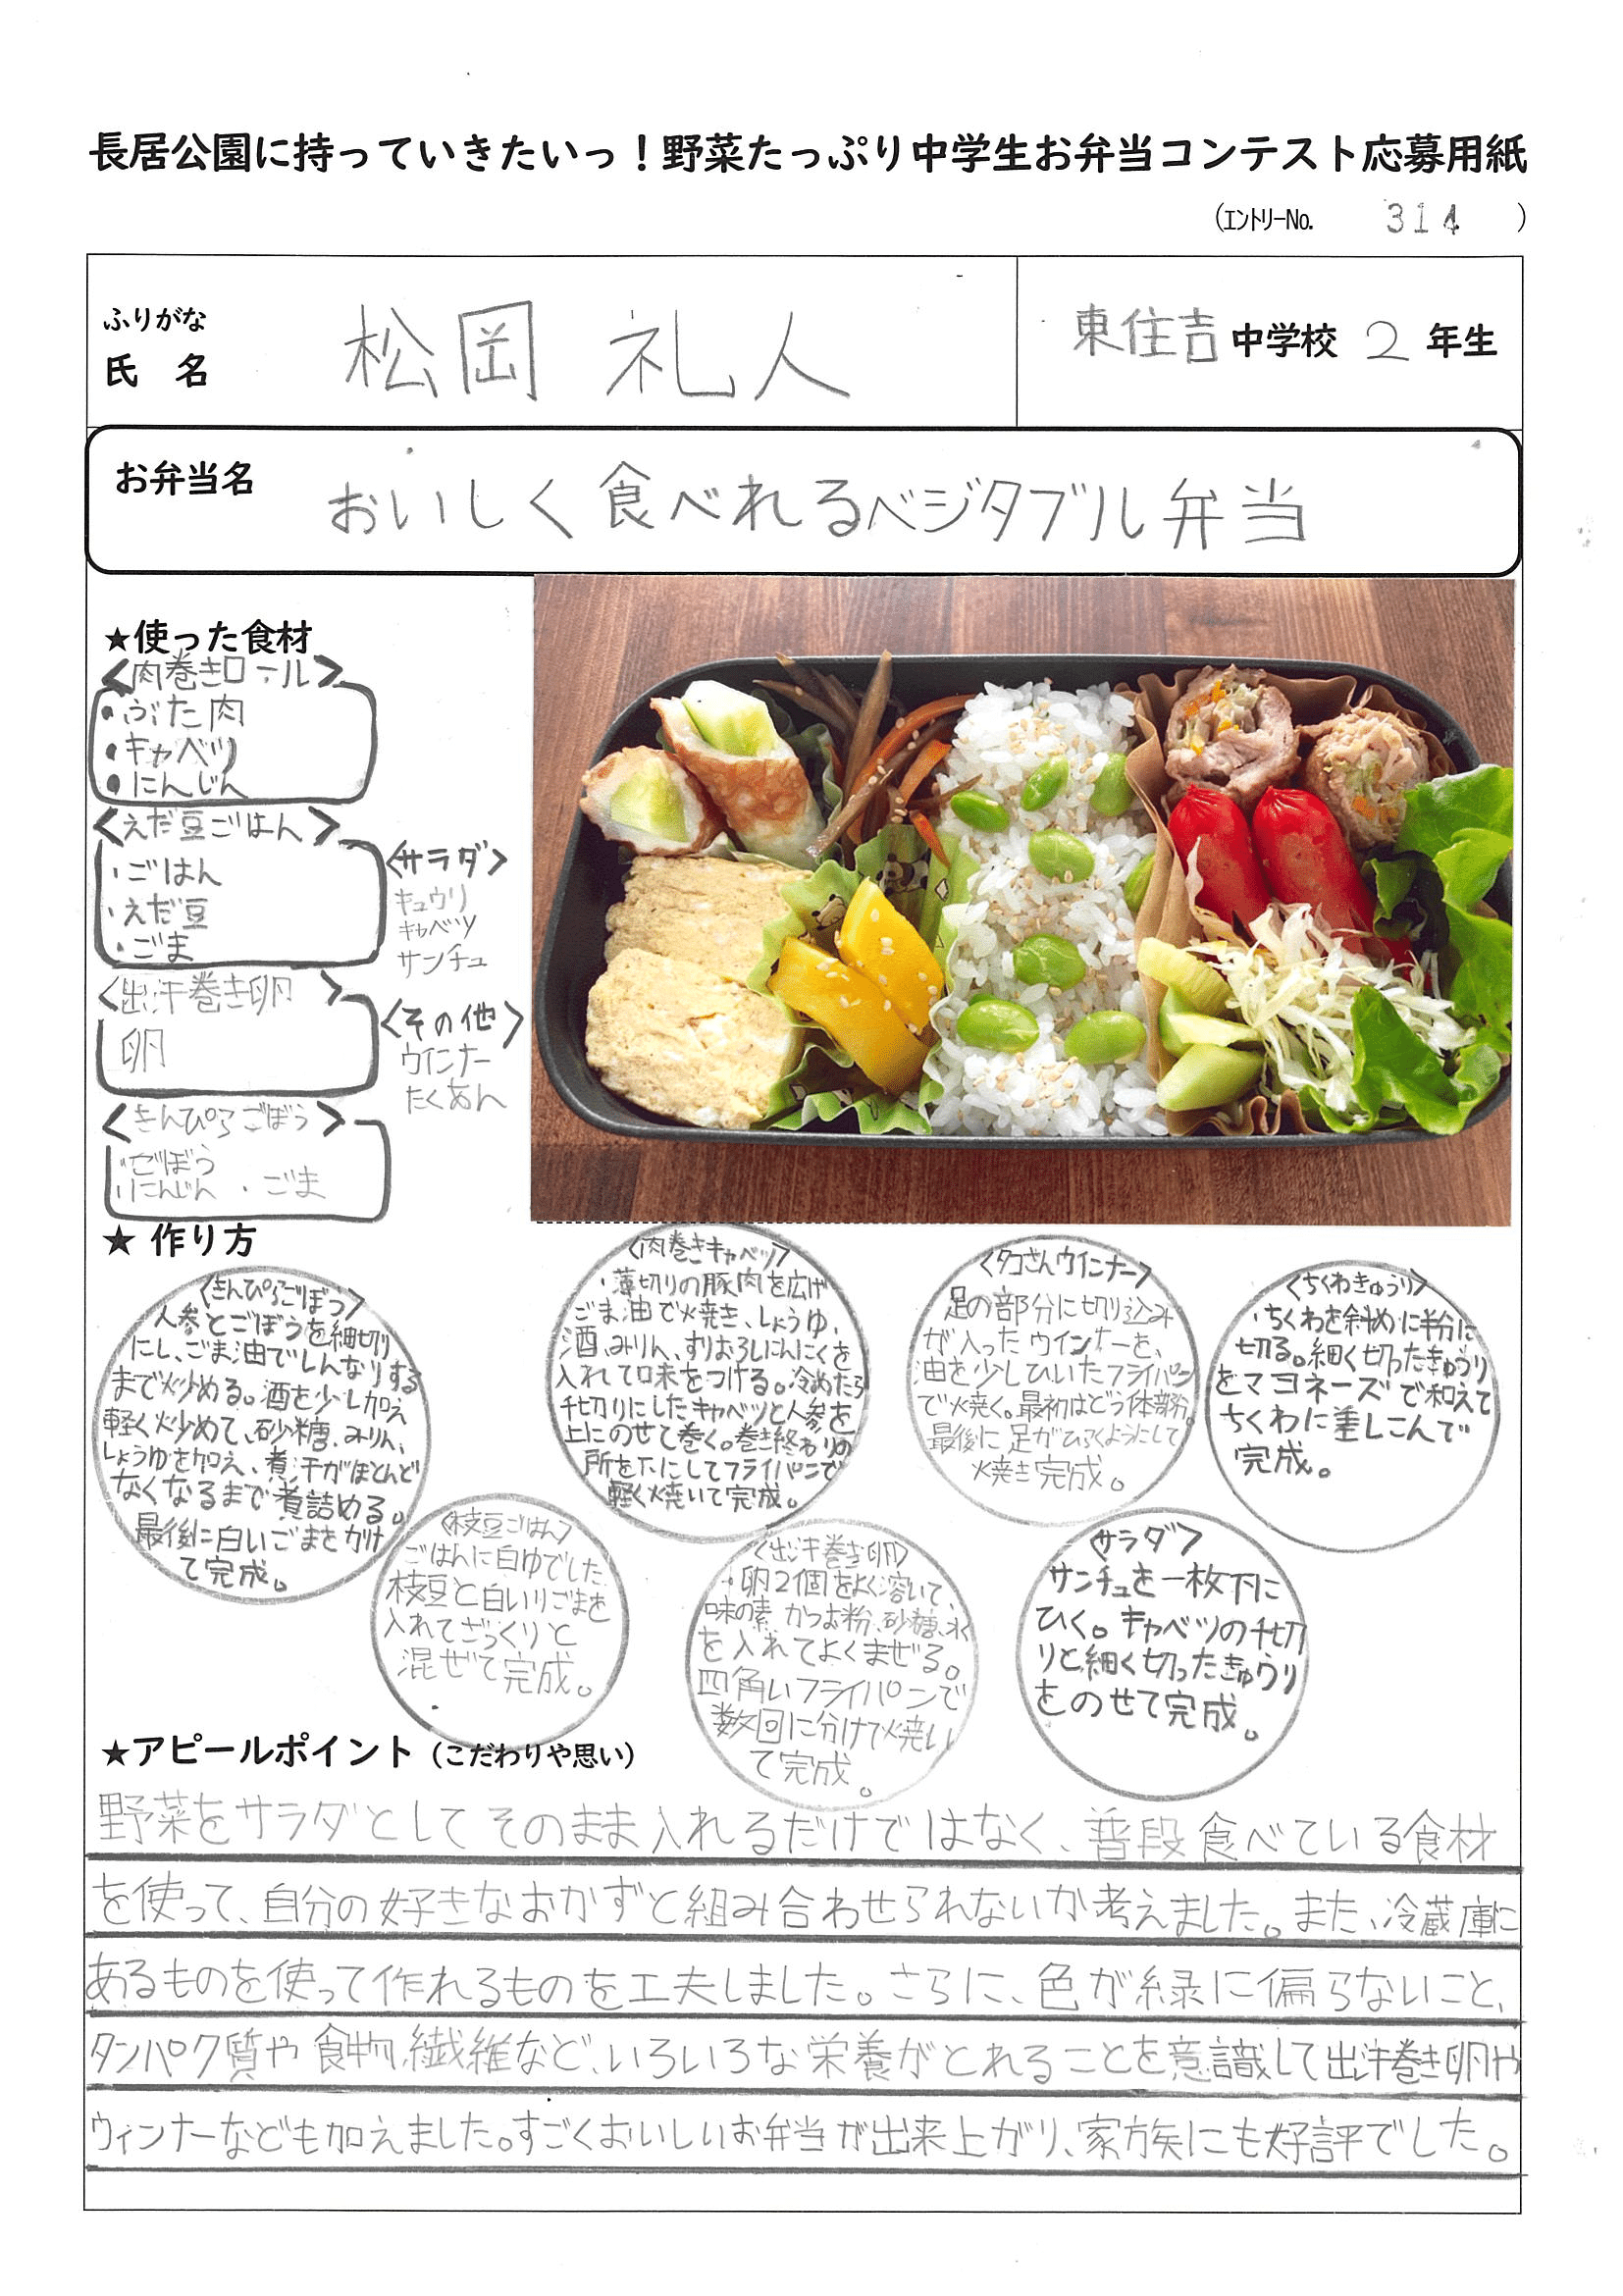 長居公園に持っていきたいっ！野菜たっぷり中学生お弁当コンテスト応募用紙
（エントリーNo. 314 ）
ふりがな
氏 名 松岡 礼人
東住吉中学校 2 年生
お弁当名 おいしく食べれるベジタブル弁当
★使った食材
<肉巻きロール>
・ぶた肉
・キャベツ
・にんじん
<えだ豆ごはん>
・ごはん
・えだ豆
・ごま
<出汁巻き卵>
卵
<きんぴらごぼう>
・ごぼう
・にんじん ・ごま
<サラダ>
キュウリ
キャベツ
サンチュ
<その他>
ウインナー
たくあん
★ 作り方
<きんぴらごぼう>
人参とごぼうを細切り
にし、ごま油でしんなりする
まで炒める。酒を少し加え
軽く炒めて、砂糖、みりん、
しょうゆを加え、煮汁がほとんど
なくなるまで煮詰める。
最後に白いごまをかけ
て完成。
<肉巻きキャベツ>
・薄切りの豚肉を広げ
ごま油で焼き、しょうゆ、
酒、みりん、すりおろしにんにくを
入れて味をつける。冷めたら
千切りにしたキャベツと人参を
上にのせて巻く。巻き終わりの
所を下にしてフライパンで
軽く焼いて完成。
<タコさんウインナー>
足の部分に切り込み
が入ったウインナーを、
油を少しひいたフライパン
で焼く。最初はどう体部分。
最後に足がひらくようにして
焼き完成。
<ちくわきゅうり>
・ちくわを斜めに半分に
切る。細く切ったきゅうり
をマヨネーズで和えて
ちくわに差しこんで
完成。
<枝豆ごはん>
ごはんに白ゆでした
枝豆と白いりごまを
入れてざっくりと
混ぜて完成。
<出汁巻き卵>
・卵2個をよく溶いて、
味の素 かつお粉、砂糖、水
を入れてよくまぜる。
四角いフライパンで
数回に分けて焼い
て完成。
<サラダ>
サンチュを一枚下に
ひく。キャベツの千切
りと細く切ったきゅうり
をのせて完成。
★アピールポイント（こだわりや思い）
野菜をサラダとしてそのまま入れるだけではなく、普段食べている食材
を使って、自分の好きなおかずと組み合わせられないか考えました。また、冷蔵庫に
あるものを使って作れるものを工夫しました。さらに、色が緑に偏らないこと、
タンパク質や食物繊維など、いろいろな栄養がとれることを意識して出汁巻き卵や
ウィンナーなども加えました。すごくおいしいお弁当が出来上がり、家族にも好評でした。